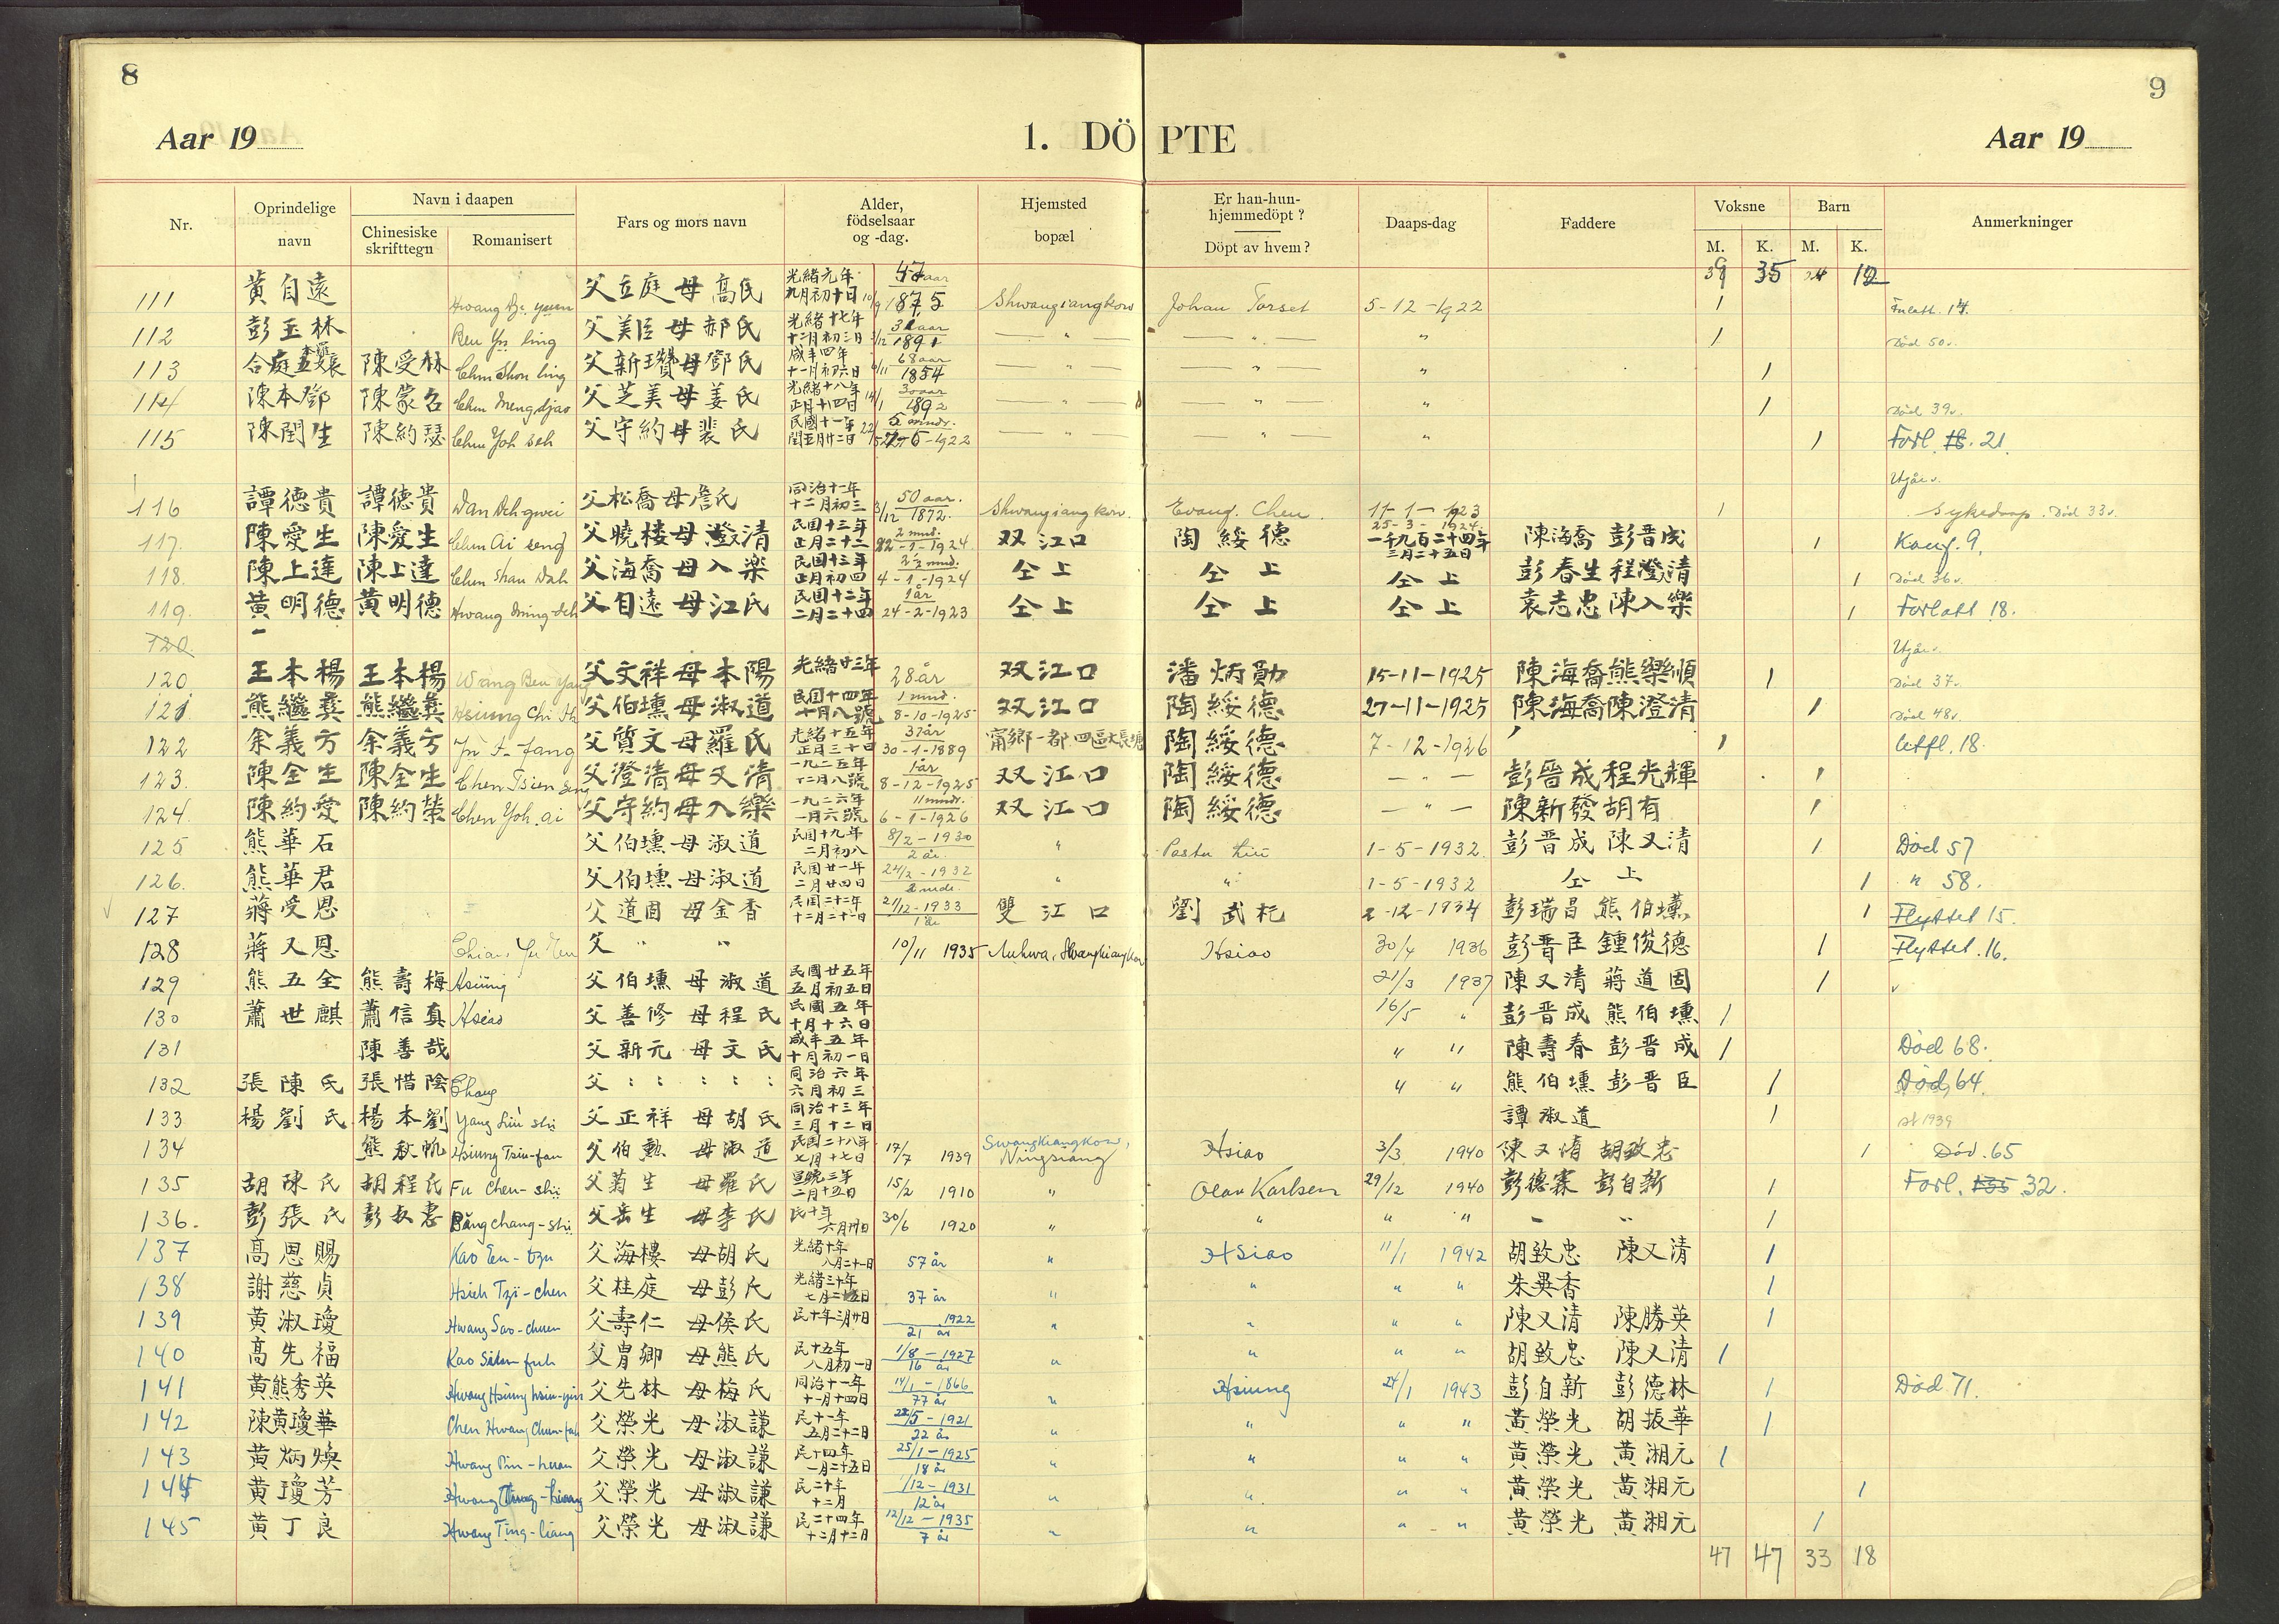 8
9
Aar 19
1. DÖPTE
Aar 19
Nr.
Oprindelige navn
Navn i daapen
Chinesiske skrifttegn
Romanisert
Fars og mors navn
Alder, födselsaar og -dag.
Hjemsted bopæl
Er han-hun-hjemmedöpt?
Döpt av hvem?
Daaps-dag
Faddere
Voksne
Barn
M. K. M. K.
Anmerkninger
35 12
111 黃自遠 父立庭母高氏 光緒元年九月初十日 1875 Shwangiangkow Johan Torset 5-12-1922 1
112 彭玉林 父美臣母郝氏 光緒十七年十二月初三日 — " — — " — " 1 Död 50
113 陳受林 Chen Shou ling 父新瓚母鄧氏 咸丰四年十一月初六日 68 aar 1854 — " — — " — " 1
114 陳本鄧 陳蒙召 Chen Mengdjao 父芝美母姜氏 光緒十八年正月十四日 14/1 30 aar 1892 — " — — " — " 1 Död 39
115 陳閏生 陳約瑟 Chen Yoh seh 父守約母裴氏 民國十一年閏五月廿二日 5 mndr. — " — — " — " 1 Forl. 21
Utgår
116 譚德貴 譚德貴 Dan Deh-gwei 父松喬母詹氏 同治十一年十二月初三 3/12 50 aar. 1872. Shwangiangkow. Evang. Chen 1 Sykedaap. Död 33
117. 陳愛生 陳愛生 Chen Ai seng 父曉楼母澄清 民国十三年正月二十二 2 mnd. 22-1-1924 双江口 陶綏德 25-3-1924. 一千九百二十四年三月二十五日 陳海喬 彭晋成 1 Konf. 9.
118. 陳上達 陳上達 Chen Shan Dah 父海喬母入楽 民国十三年正月初四 4-1-1924 仝上 仝上 仝上 彭春生程澄清 1 Död 36
119. 黃明德 黃明德 Hwang Ming-deh 父自遠母江氏 民国十二年二月二十四 1 år 24-2-1923 仝上 仝上 仝上 袁志忠陳入樂 1 Forlatt 18.
120. Utgår
120 王本楊 王本楊 Wang Ben Yang 父文祥母本陽 光緒廿三年 28 år 双江口 潘炳勛 15-11-1925 陳海喬熊樂順 1 Död 37
121 熊繼彝 熊繼彝 Hsiung Chi 父伯壎母淑道 民国十四年十月八號 1 mnd. 8-10-1925 双江口 陶綏德 27-11-1925 陳海喬陳澄清 1 Död 48
122 余義方 余義方 父質文母羅氏 光緒十五年正月三十日 37 år 30-1-1889 甯鄉一都四區 陶綏德 7-12-1926 1
123. 陳全生 陳全生 Chen Tsien Seng 父澄清母又清 一九二五年十二月八號 1 år 8-12-1925 双江口 陶綏德 — " — 彭晉成程光輝 1
124. 陳約愛 陳約 Chen Yoh. ai 父守約母入樂 一九二六年一月六號 11 mndr. 6-1-1926 双江口 陶綏德 — " — 陳新發胡有 1
125 熊華石 父伯壎母淑道 民国十九年二月初八 8/2-1930 2 år. " Pastor Liu 1-5-1932. 彭晋成 陳又清 1 Död 57
126. 熊華君 父伯壎母淑道 民国廿一年二月廿四日 24/2-1932 " " 1-5-1932 仝上 1 " 58.
127 蔣受恩 父道固 母金香 民国二十二年十二月二十一日 21/12-1933 雙江口 劉武杞 2-12-1934 彭瑞昌 熊伯壎 1 Flyttet 15.
128 蔣又恩 父 " " 10/11 1935 Anhwa, Shwangkiangkow Hsiao 30/4 1936 彭晋臣 鍾俊德 1 Flyttet. 16.
129 熊五全 熊壽梅 Hsiung 父伯壎 母淑道 民國廿五年五月初五日 21/3 1937 陳又清 蔣道固 1
130 蕭世麒 蕭信真 Hsiao 父善修 母程氏 民國五年十月十六日 16/5 " 彭晋成 熊伯壎 1
131 陳善哉 父新元 母文氏 咸丰五年十月初一日 " " 陳壽春 彭晋成 1 Död 68.
132 張陳氏 張惜陰 Chang 父 同治六年六月初三 " " 熊伯壎 彭晋臣 1 Död, 64.
133 楊劉氏 楊本劉 Yang Liu shi 父正祥 母胡氏 同治十三年三月十二日 譚淑道 1
134 熊秋帆 Hsiung Tsiu-fan 父伯勲 母淑道 民国二十八年七月十七日 17/7 1939 Swangkiangkow, Ningsiang Hsiao 3/3 1940 陳又清 胡致忠 1 Död. 65
135 胡陳氏 胡程氏 Fu Chen-shi 父菊生 母羅氏 宣統三年二月十五日 15/2 1910 " Olav Karlsen 29/12 1940 彭德霖 彭自新 1 Forl. 32.
136. 彭張氏 彭叔惠 Päng chang-shi 父岳生 母李氏 民十年六月卅日 30/6 1920 " " " " 1
137 高恩賜 Kao En-tzu 父海樓 母胡氏 光緒十年八月二十一日 57 år " Hsiao 11/1 1942 胡致忠 陳又清 1
138 謝慈貞 Hsieh Tzi-chen 父桂庭 母彭氏 光緒三十年七月二十五日 37 år " " " " 朱異香 1
139 黃淑瓊 Hwang Sao-chuen 父壽仁 母侯氏 民十年三月廿日 1922 21 år " " " " 陳又清 陳勝英 1
140 高先福 父胄卿 母熊氏 民十五年八月初一日 1/8-1927 16 år " " " " 胡致忠 陳又清 1
141 黃熊秀英 Hwang Hsiung hsiu-yin 父先林 母梅氏 同治十一年十一月十四日 14/1-1866 77 år " Hsiung 24/1 1943 彭自新 彭德林 1 Död 71.
142 陳黃瓊華 父榮光 母淑謙 民十一年五月二十二日 22/5-1921 22 år " " " " 黃榮光 胡振華 1
143 黃炳煥 Hwang Pin-huan 父榮光 母淑謙 民十四年一月二十五日 25/1-1925 18 år " " " " 黃榮光 黃湘元 1
144 黃瓊芳 父榮光 母淑謙 民二十年十二月 /12-1931 12 år " " " " 黃榮光 黃湘元 1
145 黃丁良 Hwang Ting-liang 父榮光 母淑謙 民二十四年十二月十二日 12/12-1935 7 år " " " " 黃榮光 黃湘元 1
47 47 33 18